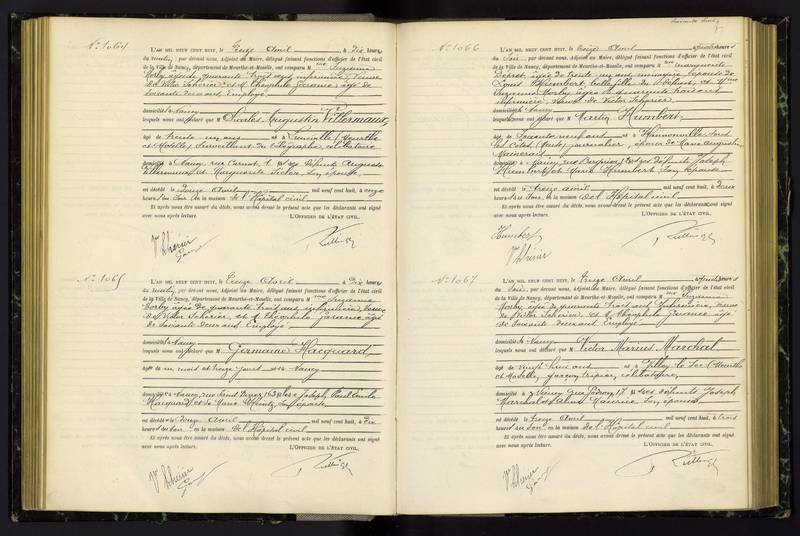 N° 1064
L'AN MIL NEUF CENT HUIT, le treize Avril à dix heures
du matin, par devant nous, Adjoint au Maire, délégué faisant fonctions d'officier de l'état civil
de la Ville de Nancy, département de Meurthe-et-Moselle, ont comparu M me Suzanne
Morby âgée de quarante trois ans infirmière, Veuve
de Victor Scherier et M. Théophile Garance âgé de
soixante deux ans, Employé
domiciliés à Nancy
lesquels nous ont déclaré que M Charles Augustin Villermaux
âgé de trente un ans né à Lunéville (Meurthe
et Moselle) Surveillant du télégraphe, célibataire
domicilié à Nancy, rue Carnot, 1 fils de défunts Auguste
Villermaux et Marguerite son épouse
est décédé le douze Avril mil neuf cent huit, à onze
heures du soir en la maison de l'Hôpital civil
Et après nous être assuré du décès, nous avons dressé le présent acte que les déclarants ont signé
avec nous après lecture. L'OFFICIER DE L'ÉTAT CIVIL,
N° 1065
L'AN MIL NEUF CENT HUIT, le treize Avril à dix heures
du matin, par devant nous, Adjoint au Maire, délégué faisant fonctions d'officier de l'état civil
de la Ville de Nancy, département de Meurthe-et-Moselle, ont comparu M me Suzanne
Morby âgée de quarante trois ans infirmière, Veuve
de Victor Scherier, et M. Théophile Garance âgé
de soixante deux ans Employé
domiciliés à Nancy
lesquels nous ont déclaré que M Germaine Hacquard
âgée de un mois et treize jours née à Nancy
domiciliée à Nancy, rue Saint Dizier, 163 fille de Joseph Paul
Hacquard et de Marie son épouse
est décédée le douze Avril mil neuf cent huit, à dix
heures du soir en la maison de l'Hôpital civil
Et après nous être assuré du décès, nous avons dressé le présent acte que les déclarants ont signé
avec nous après lecture. L'OFFICIER DE L'ÉTAT CIVIL,
N° 1066
L'AN MIL NEUF CENT HUIT, le treize Avril à heures
du soir, par devant nous, Adjoint au Maire, délégué faisant fonctions d'officier de l'état civil
de la Ville de Nancy, département de Meurthe-et-Moselle, ont comparu M me Marguerite
âgée de trente un ans ménagère Epouse de
Louis Humbert, belle fille du défunt, et Mme
Suzanne Morby âgée de quarante trois ans
infirmière Veuve de Victor Scherier
domiciliés à Nancy
lesquels nous ont déclaré que M Martin Humbert
âgé de soixante neuf ans né à Hannonville sous
les Côtes (Meuse) journalier, époux de Marie Augustin
domicilié à Nancy, rue fils de défunts Joseph
Humbert et Marie Humbert son épouse
est décédé le treize avril mil neuf cent huit, à deux
heures du soir, en la maison de l'Hôpital civil
Et après nous être assuré du décès, nous avons dressé le présent acte que les déclarants ont signé
avec nous après lecture. L'OFFICIER DE L'ÉTAT CIVIL,
Humbert
N° 1067
L'AN MIL NEUF CENT HUIT, le treize Avril à heures
du soir, par devant nous, Adjoint au Maire, délégué faisant fonctions d'officier de l'état civil
de la Ville de Nancy, département de Meurthe-et-Moselle, ont comparu M me Suzanne
Morby âgée de quarante trois ans Infirmière, Veuve
de Victor Scherier, et M. Théophile Garance âgé
de soixante deux ans Employé
domiciliés à Nancy
lesquels nous ont déclaré que M Victor Marius Marchal
âgé de vingt huit ans né à Villey le Sec (Meurthe
et Moselle), garçon tripier, célibataire,
domicilié à Nancy rue 17 fils de défunts Joseph
Marchal et Maurice son épouse
est décédé le treize Avril mil neuf cent huit, à trois
heures du soir en la maison de l'Hôpital civil
Et après nous être assuré du décès, nous avons dressé le présent acte que les déclarants ont signé
avec nous après lecture. L'OFFICIER DE L'ÉTAT CIVIL,